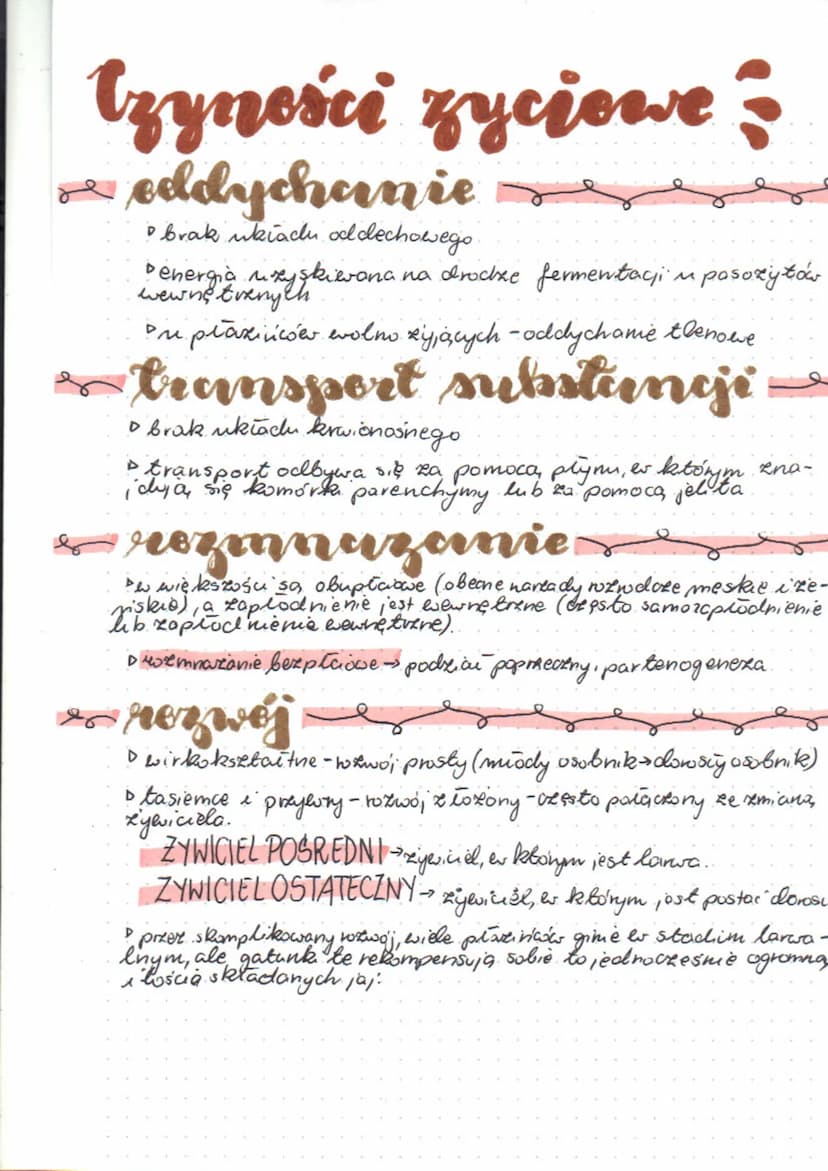 Czyności zyciowe
oddychanie
brak układu oddechowego
energia uzyskiwana na drodze fermentacji u pasożytów
wewnętrznych
u płazińców wolno żyjących - oddychanie tlenowe
transport substancji
brak układu krwionośnego
transport odbywa się za pomocą płynu, w którym zna-
jdują się komórki parenchymy lub za pomocą jelita
rozmnazanie
w większości są obupłciowe (obecne narządy rozrodcze męskie i że-
ńskie), a zapłodnienie jest wewnętrzne (często samozapłodnienie
lub zapłodnienie wewnętrzne).
rozmnażanie bezpłciowe → podział poprzeczny, partenogeneza
rozwój
wirkokształtne - rozwój prosty (młody osobnik → dorosły osobnik)
tasiemce i przywry - rozwój złożony - często połączony ze zmianą
żywiciela.
ŻYWICIEL POŚREDNI → żywiciel, w którym jest larwa.
ŻYWICIEL OSTATECZNY → żywiciel, w którym jest postać doros
przez skomplikowany rozwój, wiele płazińców ginie w stadium larwa-
lnym, ale gatunki te rekompensują sobie to jednocześnie ogromną
ilością składanych jaj.